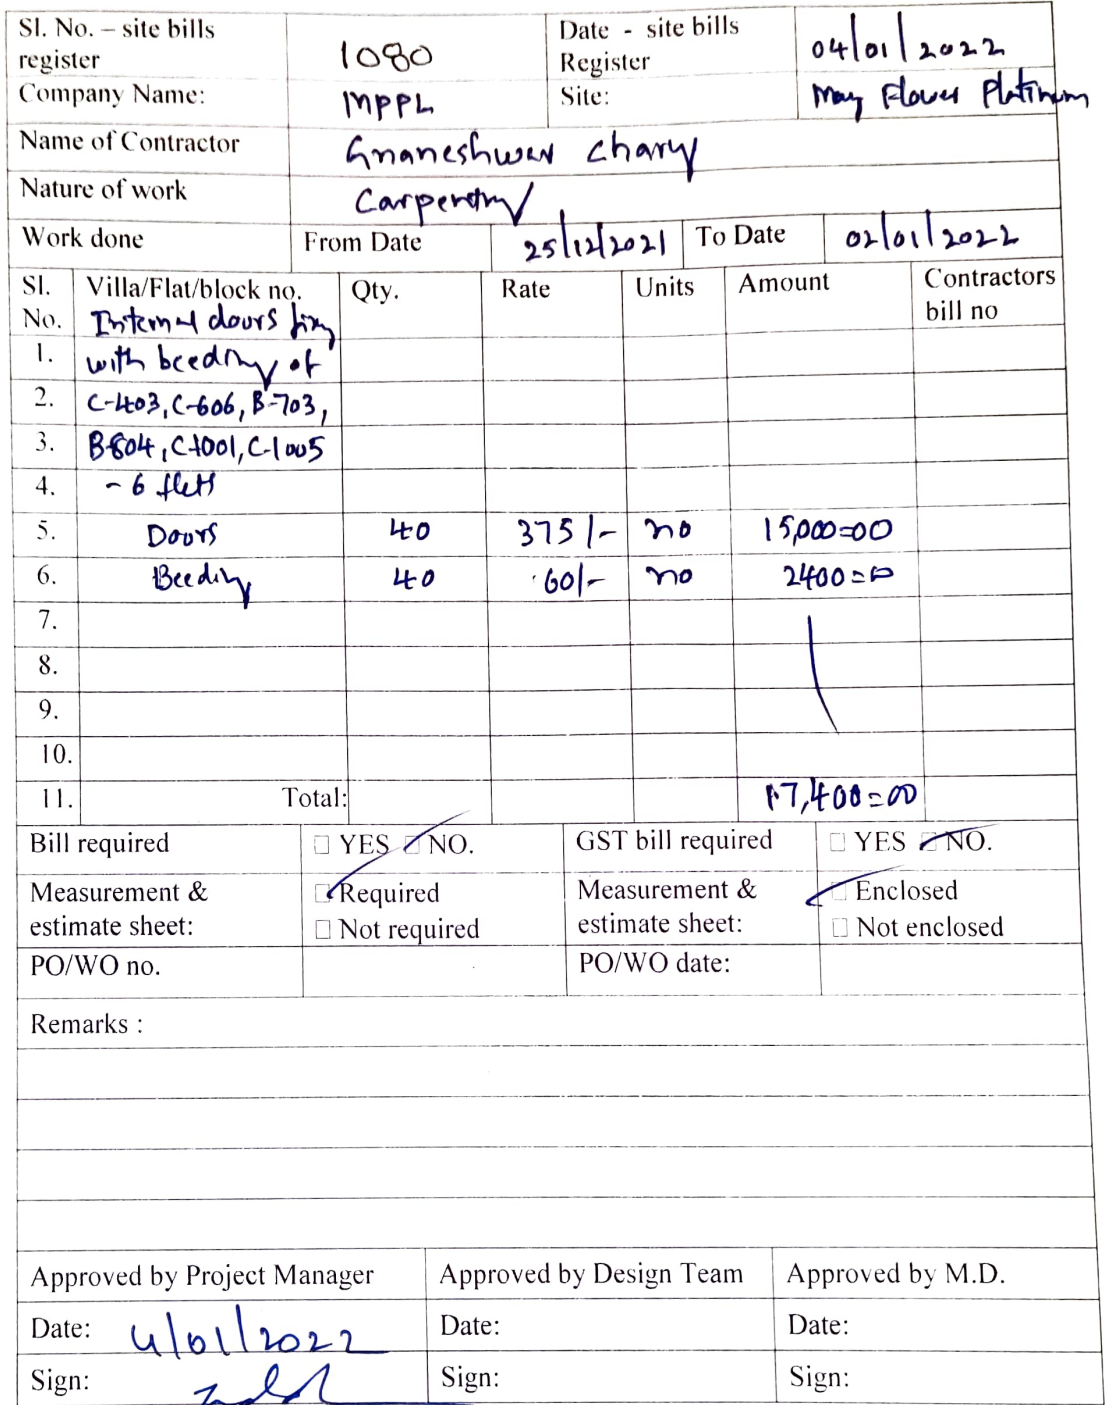 Sl. No. – site bills register 1080 Date - site bills Register 04/01/2022
Company Name: MPPL Site: May Flower Platinum
Name of Contractor Gnaneshwar chary
Nature of work Carpentry
Work done From Date 25/12/2021 To Date 02/01/2022
Sl. No. Villa/Flat/block no. Qty. Rate Units Amount Contractors bill no
Internal doors fixing
1. with beeding of
2. C-403, C-606, B-703,
3. B-804, C-1001, C-1005
4. - 6 flets
5. Doors 40 375/- no 15,000=00
6. Beeding 40 60/- no 2400=00
7.
8.
9.
10.
11. Total: 17,400=00
Bill required □ YES □ NO. GST bill required □ YES □ NO.
Measurement & estimate sheet: □ Required □ Not required Measurement & estimate sheet: □ Enclosed □ Not enclosed
PO/WO no. PO/WO date:
Remarks :
Approved by Project Manager Approved by Design Team Approved by M.D.
Date: 4/01/2022 Date: Date:
Sign: Sign: Sign: